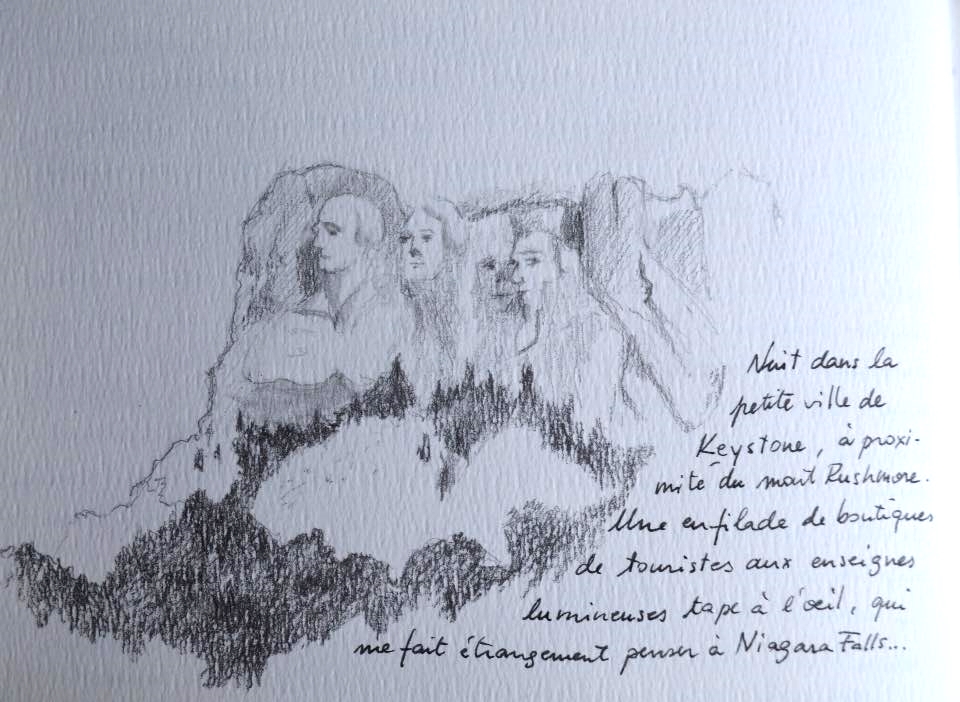 Nuit dans la
petite ville de
Keystone, à proxi-
mité du mont Rushmore.
Une enfilade de boutiques
de touristes aux enseignes
lumineuses tape à l'œil, qui
me fait étrangement penser à Niagara Falls...